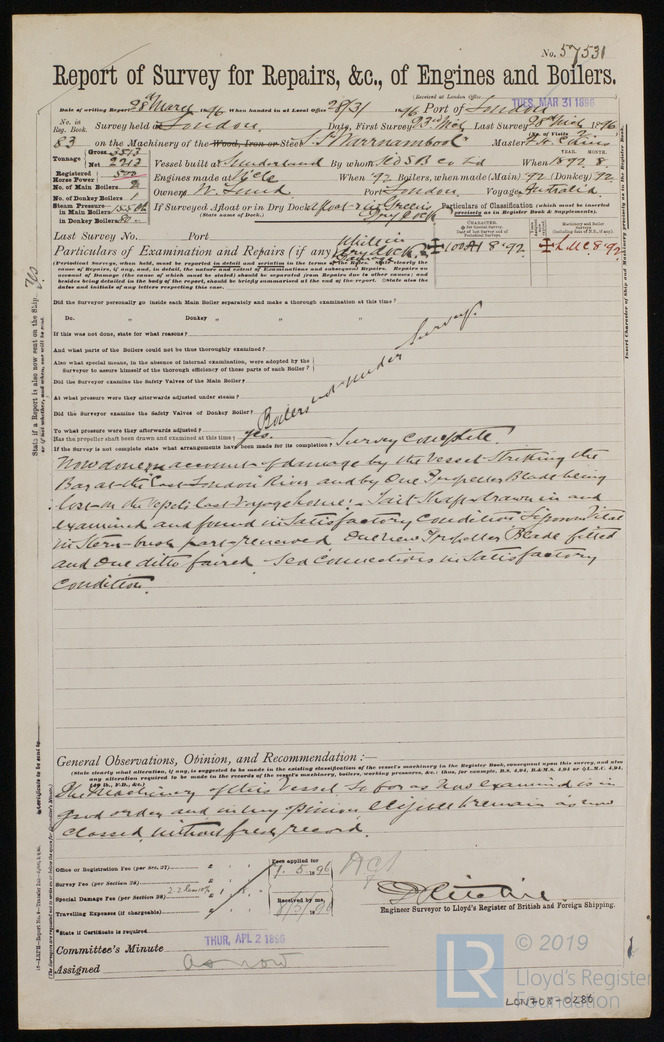 No. 57531
Report of Survey for Repairs, &c., of Engines and Boilers.
(Received at London Office
TUES. MAR 31 1896
Date of writing Report 28th March 1896 When handed in at Local Office 28/3/ 1896 Port of London
No. in Reg. Book. Survey held at London. Date, First Survey 23rd Mch Last Survey 28th Mch 1896
83 on the Machinery of the Wood, Iron or Steel S.S. Warrnambool Master
Tonnage Gross 3513 Net 2213
Vessel built at Sunderland By whom When 1892. 8.
Registered Horse Power 500
No. of Main Boilers 2
Engines made at When '92 Boilers, when made (Main) '92 (Donkey) 92
No. of Donkey Boilers 1
Owners W. Lund Port London Voyage Australia
Steam Pressure in Main Boilers
in Donkey Boilers 80
If Surveyed Afloat or in Dry Dock Afloat & in Green's Dry Dock
(State name of Dock.)
Particulars of Classification (which must be inserted precisely as in Register Book & Supplements).
Last Survey No. Port
CHARACTER.
100A1 8.92
LMC 8.92
Particulars of Examination and Repairs (if any) Whilst in dry dock
(Periodical Surveys, when held, must be reported in detail and seriatim in the terms of the Rules. State clearly the cause of Repairs, if any, and, in detail, the nature and extent of Examinations and subsequent Repairs. Repairs on account of Damage (the cause of which must be stated) should be separated from Repairs due to other causes; and besides being detailed in the body of the report, should be briefly summarised at the end of the report. State also the dates and initials of any letters respecting this case.
Did the Surveyor personally go inside each Main Boiler separately and make a thorough examination at this time?
Do. " Donkey " " "
If this was not done, state for what reasons?
And what parts of the Boilers could not be thus thoroughly examined?
Also what special means, in the absence of internal examination, were adopted by the Surveyor to assure himself of the thorough efficiency of those parts of each Boiler?
Did the Surveyor examine the Safety Valves of the Main Boiler?
At what pressure were they afterwards adjusted under steam?
Did the Surveyor examine the Safety Valves of Donkey Boiler?
To what pressure were they afterwards adjusted?
Boilers not under Survey.
Has the propeller shaft been drawn and examined at this time? Yes.
If the Survey is not complete state what arrangements have been made for its completion? Survey Complete.
Now done on account of damage by the Vessel Striking the
Bar at the East London River and by One Propeller Blade being
lost on the Vessels last Voyage home: Tail Shaft drawn in and
examined and found in Satisfactory Condition Lignum Vitae
in Stern-bush part renewed One new Propeller Blade fitted
and One ditto faired. Sea Connections in Satisfactory
Condition.
General Observations, Opinion, and Recommendation :—
(State clearly what alteration, if any, is suggested to be made in the existing classification of the vessel's machinery in the Register Book, consequent upon this survey, and also any alteration required to be made in the records of the vessel's machinery, boilers, working pressures, &c.: thus, for example, B.S. 4,94, B.&M.S. 4.94 or L.M.C. 4,94,
The Machinery of this Vessel So far as now examined is in
good order and in my opinion eligible to remain as now
Classed, without fresh record.
Office or Registration Fee (per Sec. 27)
Survey Fee (per Section 28)
Special Damage Fee (per Section 28)
Travelling Expenses (if chargeable)
Fees applied for
Received by me,
D Ritchie
Engineer Surveyor to Lloyd's Register of British and Foreign Shipping.
State if Certificate is required
Committee's Minute THUR. APL 2 1896
Assigned as now
State if a Report is also now sent on the Ship. Yes
or if not whether, and when, one will be sent.
Insert Character of Ship and Machinery precisely as in the Register Book.
LR © 2019
Lloyd's Register
Foundation
LON708-0286